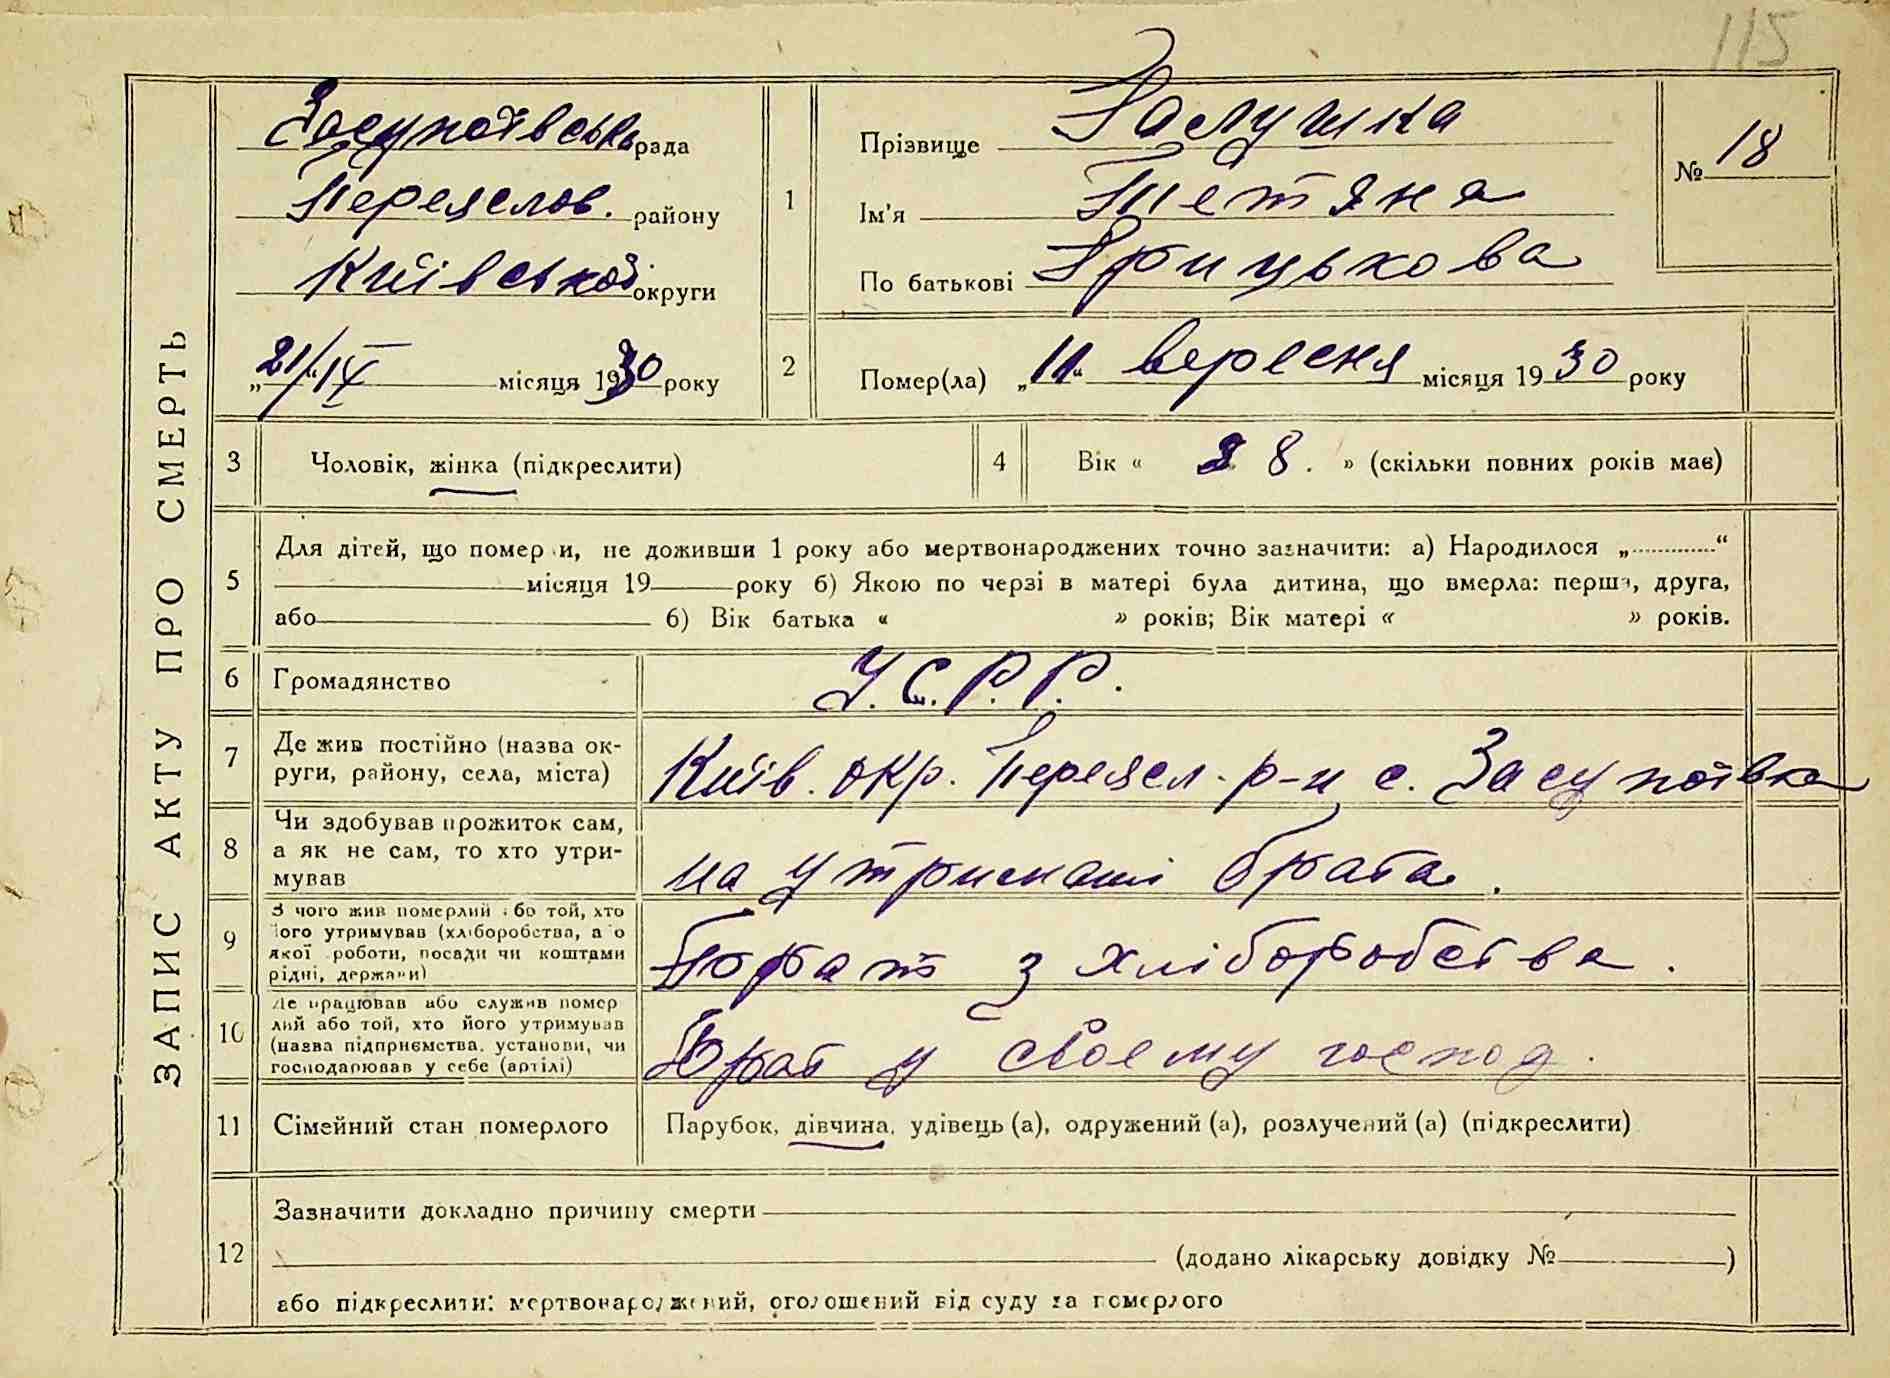 115
ЗАПИС АКТУ ПРО СМЕРТЬ
Засупоївська рада
Переяслов. району
Київської округи
21/IX місяця 1930 року
1
Прізвище Галушка
Ім'я Тетяна
По батькові Грицькова
№ 18
2
Помер(ла) „11“ вересня місяця 1930 року
3 Чоловік, жінка (підкреслити)
4 Вік « 28. » (скільки повних років має)
5 Для дітей, що померли, не доживши 1 року або мертвонароджених точно зазначити: а) Народилося „ “
місяця 19 року б) Якою по черзі в матері була дитина, що вмерла: перша, друга,
або 6) Вік батька « » років; Вік матері « » років.
6 Громадянство У.С.Р.Р.
7 Де жив постійно (назва ок-
руги, району, села, міста) Київ. окр. Переясл. р-н с. Засупоївка
8 Чи здобував прожиток сам,
а як не сам, то хто утри-
мував на утриманні брата.
9 З чого жив померлий або той, хто
його утримував (хліборобства, або
якої роботи, посади чи коштами
рідні, держави) Брат з хліборобства.
10 Де працював або служив помер
лий або той, хто його утримував
(назва підприємства, установи, чи
господарював у себе (артілі) Брат у своєму господ.
11 Сімейний стан померлого Парубок, дівчина, удівець (а), одружений (а), розлучений (а) (підкреслити)
12 Зазначити докладно причину смерти
(додано лікарську довідку № )
або підкреслити: мертвонароджений, оголошений від суду за померлого